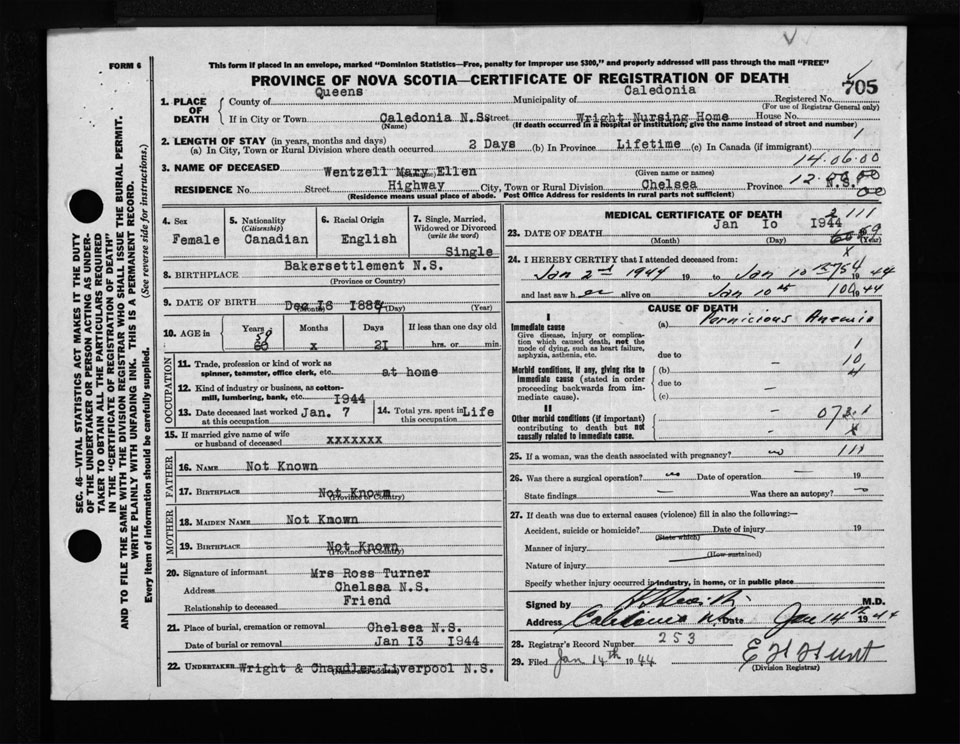 FORM 6
This form if placed in an envelope, marked "Dominion Statistics—Free, penalty for improper use $300," and properly addressed will pass through the mail "FREE"
PROVINCE OF NOVA SCOTIA—CERTIFICATE OF REGISTRATION OF DEATH
705
1. PLACE OF DEATH
County of Queens Municipality of Caledonia Registered No.
(For use of Registrar General only)
If in City or Town Caledonia N.S. Street Wright Nursing Home House No.
(Name) (If death occurred in a hospital or institution, give the name instead of street and number)
2. LENGTH OF STAY (in years, months and days)
(a) In City, Town or Rural Division where death occurred 2 Days (b) In Province Lifetime (c) In Canada (if immigrant) 1
14.06.00
3. NAME OF DECEASED Wentzell Mary Ellen
(Given name or names)
12.00.00
RESIDENCE No. Street Highway City, Town or Rural Division Chelsea Province N.S.
00
(Residence means usual place of abode. Post Office Address for residents in rural parts not sufficient)
4. Sex
Female
5. Nationality
(Citizenship)
Canadian
6. Racial Origin
English
7. Single, Married, Widowed or Divorced
(write the word)
Single
8. BIRTHPLACE Bakersettlement N.S.
(Province or County)
9. DATE OF BIRTH Dec 16 1884
(Month) (Day) (Year)
10. AGE in
Years
59
60
Months
x
Days
21
If less than one day old
hrs. or min.
OCCUPATION
11. Trade, profession or kind of work as
spinner, teamster, office clerk, etc. at home
12. Kind of industry or business, as cotton-
mill, lumbering, bank, etc.
1944
13. Date deceased last worked at this occupation Jan. 7
14. Total yrs. spent in this occupation Life
15. If married give name of wife or husband of deceased xxxxxxx
FATHER
16. NAME Not Known
17. BIRTHPLACE Not Known
(Province or Country)
MOTHER
18. MAIDEN NAME Not Known
19. BIRTHPLACE Not Known
(Province or Country)
20. Signature of informant Mrs Ross Turner
Address Chelsea N.S.
Relationship to deceased Friend
21. Place of burial, cremation or removal Chelsea N.S.
Date of burial or removal Jan 13 1944
22. UNDERTAKER Wright & Chandler Liverpool N.S.
(Name and address)
MEDICAL CERTIFICATE OF DEATH
2 111
23. DATE OF DEATH Jan 10 1944
(Month) (Day) (Year)
24. I HEREBY CERTIFY that I attended deceased from:
Jan 2nd 1944 19 to Jan 10th 1944
and last saw her alive on Jan 10th 1944
CAUSE OF DEATH
I
Immediate cause
Give disease, injury or complication which caused death, not the mode of dying, such as heart failure, asphyxia, asthenia, etc.
(a) Pernicious Anemia
due to
Morbid conditions, if any, giving rise to immediate cause (stated in order proceeding backwards from immediate cause).
(b)
due to
(c)
1
10
4
II
Other morbid conditions (if important) contributing to death but not causally related to immediate cause.
25. If a woman, was the death associated with pregnancy? no 111
26. Was there a surgical operation? no Date of operation — 19
State findings — Was there an autopsy?
27. If death was due to external causes (violence) fill in also the following:—
Accident, suicide or homicide? Date of injury 19
(State which)
Manner of injury
(How sustained)
Nature of injury
Specify whether injury occurred in industry, in home, or in public place
Signed by M.D.
Address Caledonia N.S. Date Jan 14th 1944
28. Registrar's Record Number 253
29. Filed Jan 14th 1944 E H Hunt
(Division Registrar)
SEC. 46—VITAL STATISTICS ACT MAKES IT THE DUTY
OF THE UNDERTAKER OR PERSON ACTING AS UNDER-
TAKER TO OBTAIN ALL THE PARTICULARS REQUIRED
IN THE "CERTIFICATE OF REGISTRATION OF DEATH"
AND TO FILE THE SAME WITH THE DIVISION REGISTRAR WHO SHALL ISSUE THE BURIAL PERMIT.
WRITE PLAINLY WITH UNFADING INK. THIS IS A PERMANENT RECORD.
Every item of information should be carefully supplied. (See reverse side for instructions.)